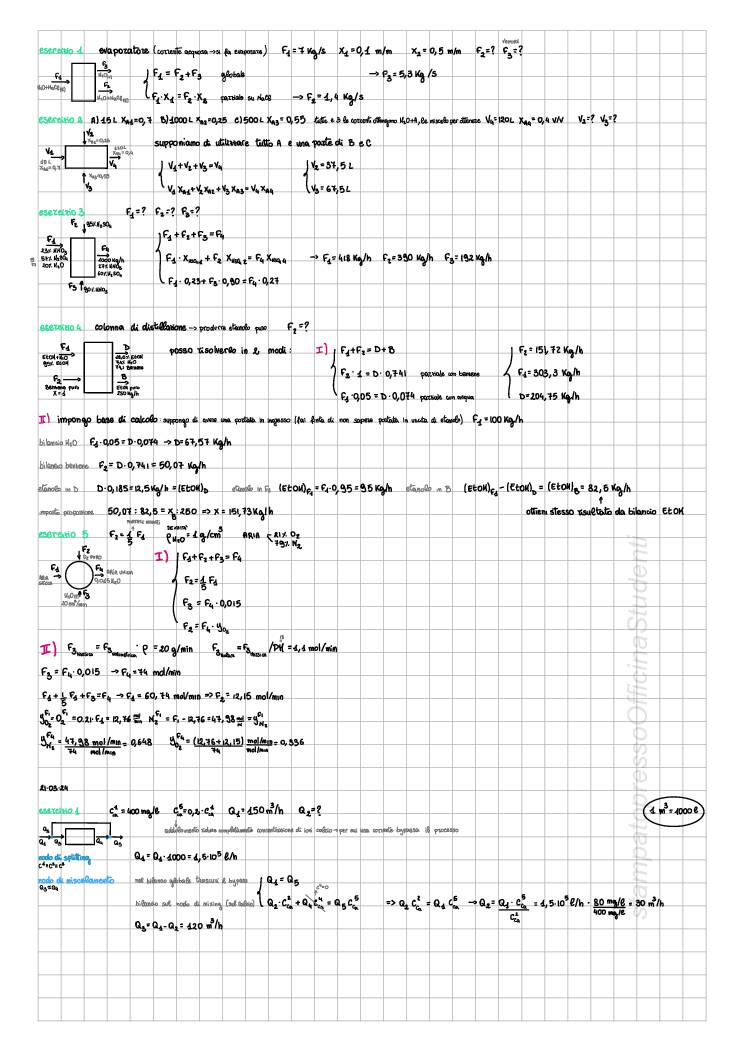 esercizio 1 evaporatore (corrente acquosa → si fa evaporare) F1 = 7 Kg/s X1 = 0,1 m/m X2 = 0,5 m/m F2 = ? F3 = ?
vapore
F1 F3 F2
H2O
F1 = F2 + F3 globale → F3 = 5,3 Kg/s
F1 · X1 = F2 · X2 parziale su NaCl → F2 = 1,4 Kg/s
esercizio 2 A) 15 L XA1 = 0,7 B) 1000 L XA2 = 0,25 C) 500 L XA3 = 0,55 tutte e 3 le correnti contengono H2O + A, le miscelo per ottenere V4 = 120 L XA4 = 0,4 V/V V2 = ? V3 = ?
V2
XA2 = 0,25
V1 V4
XA1 = 0,7
XA3 = 0,55
V3
supponiamo di utilizzare tutto A e una parte di B e C
V1 + V2 + V3 = V4 V2 = 37,5 L
V1 XA1 + V2 XA2 + V3 XA3 = V4 XA4 V3 = 67,5 L
esercizio 3 F1 = ? F2 = ? F3 = ?
F2 93% H2SO4
F1 F4
23% HNO3 1000 Kg/h
57% H2SO4 27% HNO3
20% H2O 60% H2SO4
F3 90% HNO3
F1 + F2 + F3 = F4
→ F1 = 418 Kg/h F2 = 390 Kg/h F3 = 192 Kg/h
F1 · 0,23 + F3 · 0,90 = F4 · 0,27
esercizio 4 colonna di distillazione → produrre etanolo puro F2 = ?
F1 D
EtOH + H2O
95% EtOH
F2 B
Benzene puro EtOH puro
X = 1 250 Kg/h
posso risolverlo in 2 modi : I)
F1 + F2 = D + B F2 = 151,72 Kg/h
F2 · 1 = D · 0,741 parziale con benzene F1 = 303,3 Kg/h
F1 · 0,05 = D · 0,074 parziale con acqua D = 204,75 Kg/h
II) impongo base di calcolo : suppongo di avere una portata in ingresso (fai finta di non sapere portata in uscita di etanolo) F1 = 100 Kg/h
bilancio H2O F1 · 0,05 = D · 0,074 → D = 67,57 Kg/h
bilancio benzene F2 = D · 0,741 = 50,07 Kg/h
etanolo in D D · 0,185 = 12,5 Kg/h = (EtOH)D etanolo in F1 (EtOH)F1 = F1 · 0,95 = 95 Kg/h etanolo in B (EtOH)F1 - (EtOH)D = (EtOH)B = 82,5 Kg/h
imposto proporzione 50,07 : 82,5 = X : 250 → X = 151,73 Kg/h ottieni stesso risultato da bilancio EtOH
esercizio 5 F2 = 1/5 F1 ρH2O = 1 g/cm³ ARIA 21% O2
79% N2
F2
F1 F4
F3
20 m³/min
I) F1 + F2 + F3 = F4
F2 = 1/5 F1
F3 = F4 · 0,015
F2 = F4 · yO2
II) F3 massica = F3 volumetrica · ρ = 20 g/min F3 molare = F3 massica / PM = 1,1 mol/min
F3 = F4 · 0,015 → F4 = 74 mol/min
F1 + 1/5 F1 + F3 = F4 → F1 = 60,74 mol/min ⇒ F2 = 12,15 mol/min
= 0.21 · F1 = 12,76 = F1 - 12,76 = 47,98
yN2 F4 = 47,98 mol/min / 74 mol/min = 0,648 yO2 F4 = (12,76 + 12,15) mol/min / 74 mol/min = 0,336
21-03-24
esercizio 1 C¹Ca = 400 mg/l C⁵Ca = 0,2 · C¹Ca Q1 = 150 m³/h Q2 = ? 1 m³ = 1000 l
addolcitore riduce completamente concentrazione di ioni calcio → per cui una corrente bypassa il processo
Q2
Q1 Q3 Q4 Q5
nodo di splitting Q1 = Q1 · 1000 = 1,5 · 10⁵ l/h
C¹ = C² = C³
nodo di miscelamento nel bilancio globale trascuri il bypass Q1 = Q5
Q3 = Q4
bilancio sul nodo di mixing (nel calcio) Q2 · C²Ca + Q4 C⁴Ca = Q5 C⁵Ca ⇒ Q2 C²Ca = Q1 C⁵Ca → Q2 = Q1 · C⁵Ca / C²Ca = 1,5 · 10⁵ l/h · 80 mg/l / 400 mg/l = 30 m³/h
Q3 = Q1 - Q2 = 120 m³/h
stampatopressoOfficinaStudenti